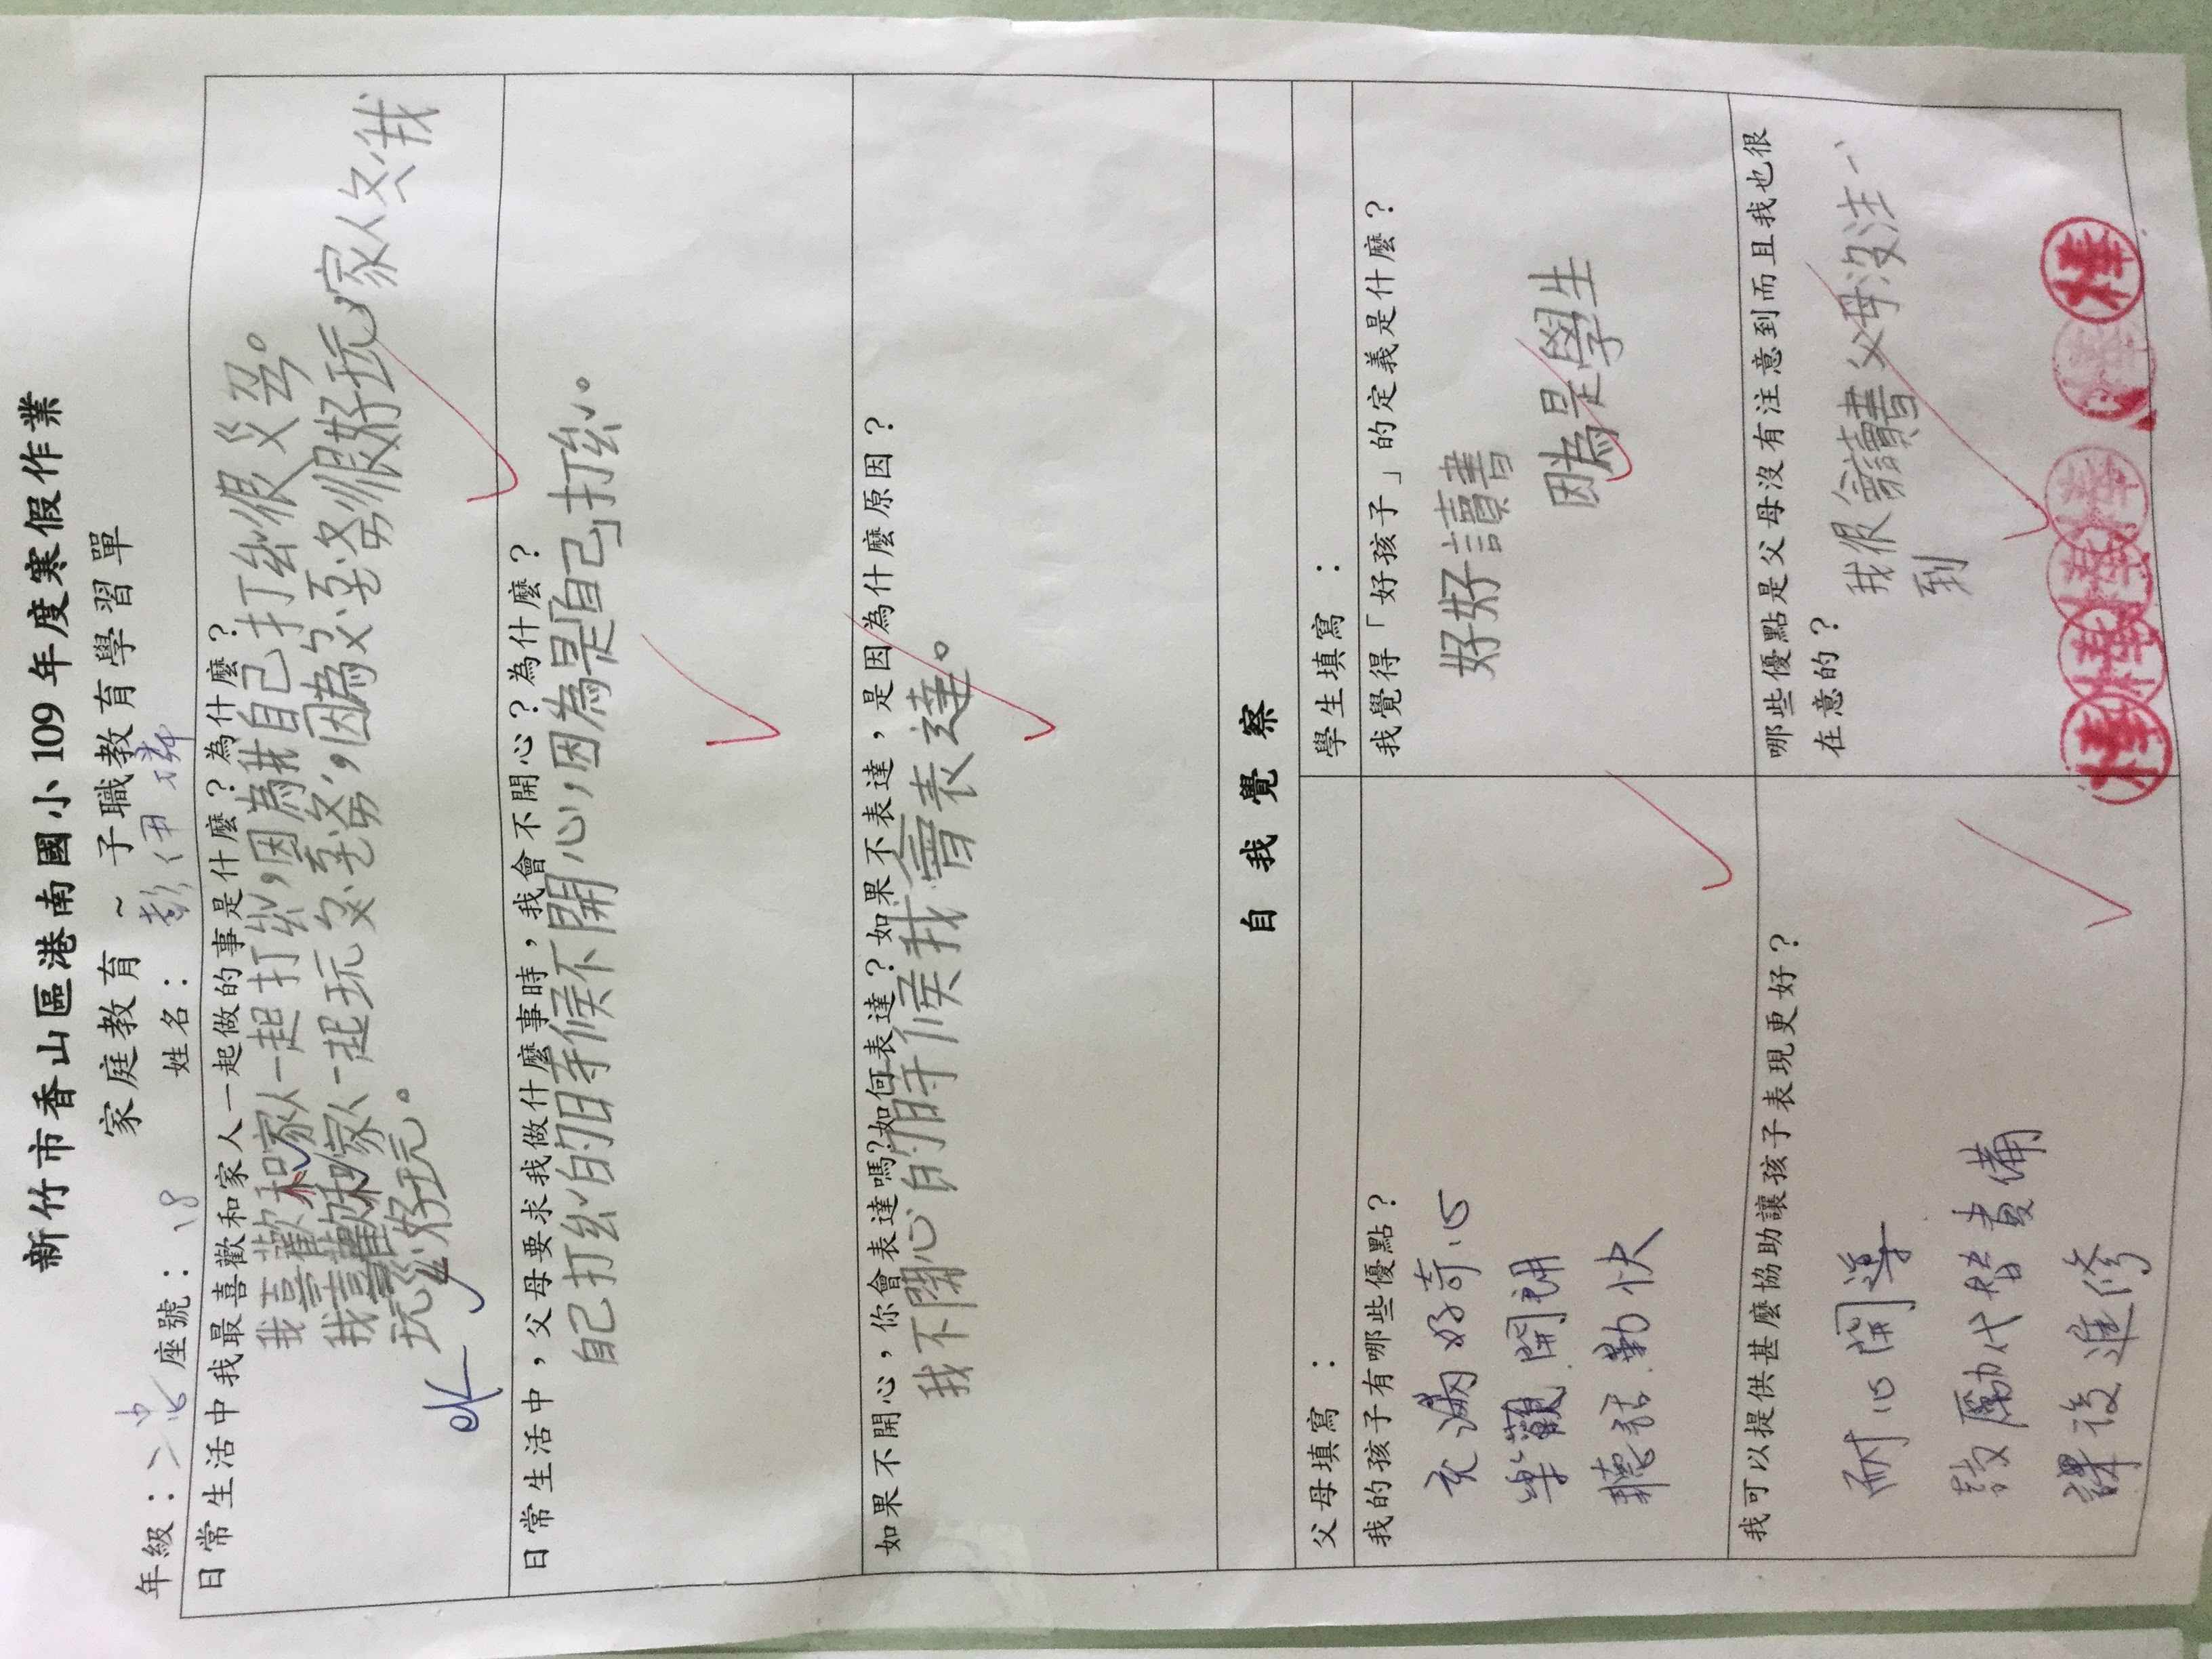 新竹市香山區港南國小109年度寒假作業
家庭教育～子職教育學習單
年級：二忠 座號：18 姓名：彭伊
日常生活中我最喜歡和家人一起做的事是什麼？為什麼？
我喜歡和家人一起打幺,因為我自己打幺很
我喜歡和家人一起玩 因為 很好玩,家人 我
玩 好玩。
OK
日常生活中，父母要求我做什麼事時，我會不開心？為什麼？
自己打幺的時候不開心,因為是自己打幺。
如果不開心，你會表達嗎?如何表達？如果不表達，是因為什麼原因？
我不開心的時候我會表達。
自我覺察
父母填寫：
學生填寫：
我的孩子有哪些優點？
充滿好奇心
樂觀開朗
聽話勤快
我覺得「好孩子」的定義是什麼？
好好讀書
因為是學生
我可以提供甚麼協助讓孩子表現更好？
耐心開導
鼓勵代替責備
課後進修
哪些優點是父母沒有注意到而且我也很
在意的？
我很會讀書父母沒注一
到